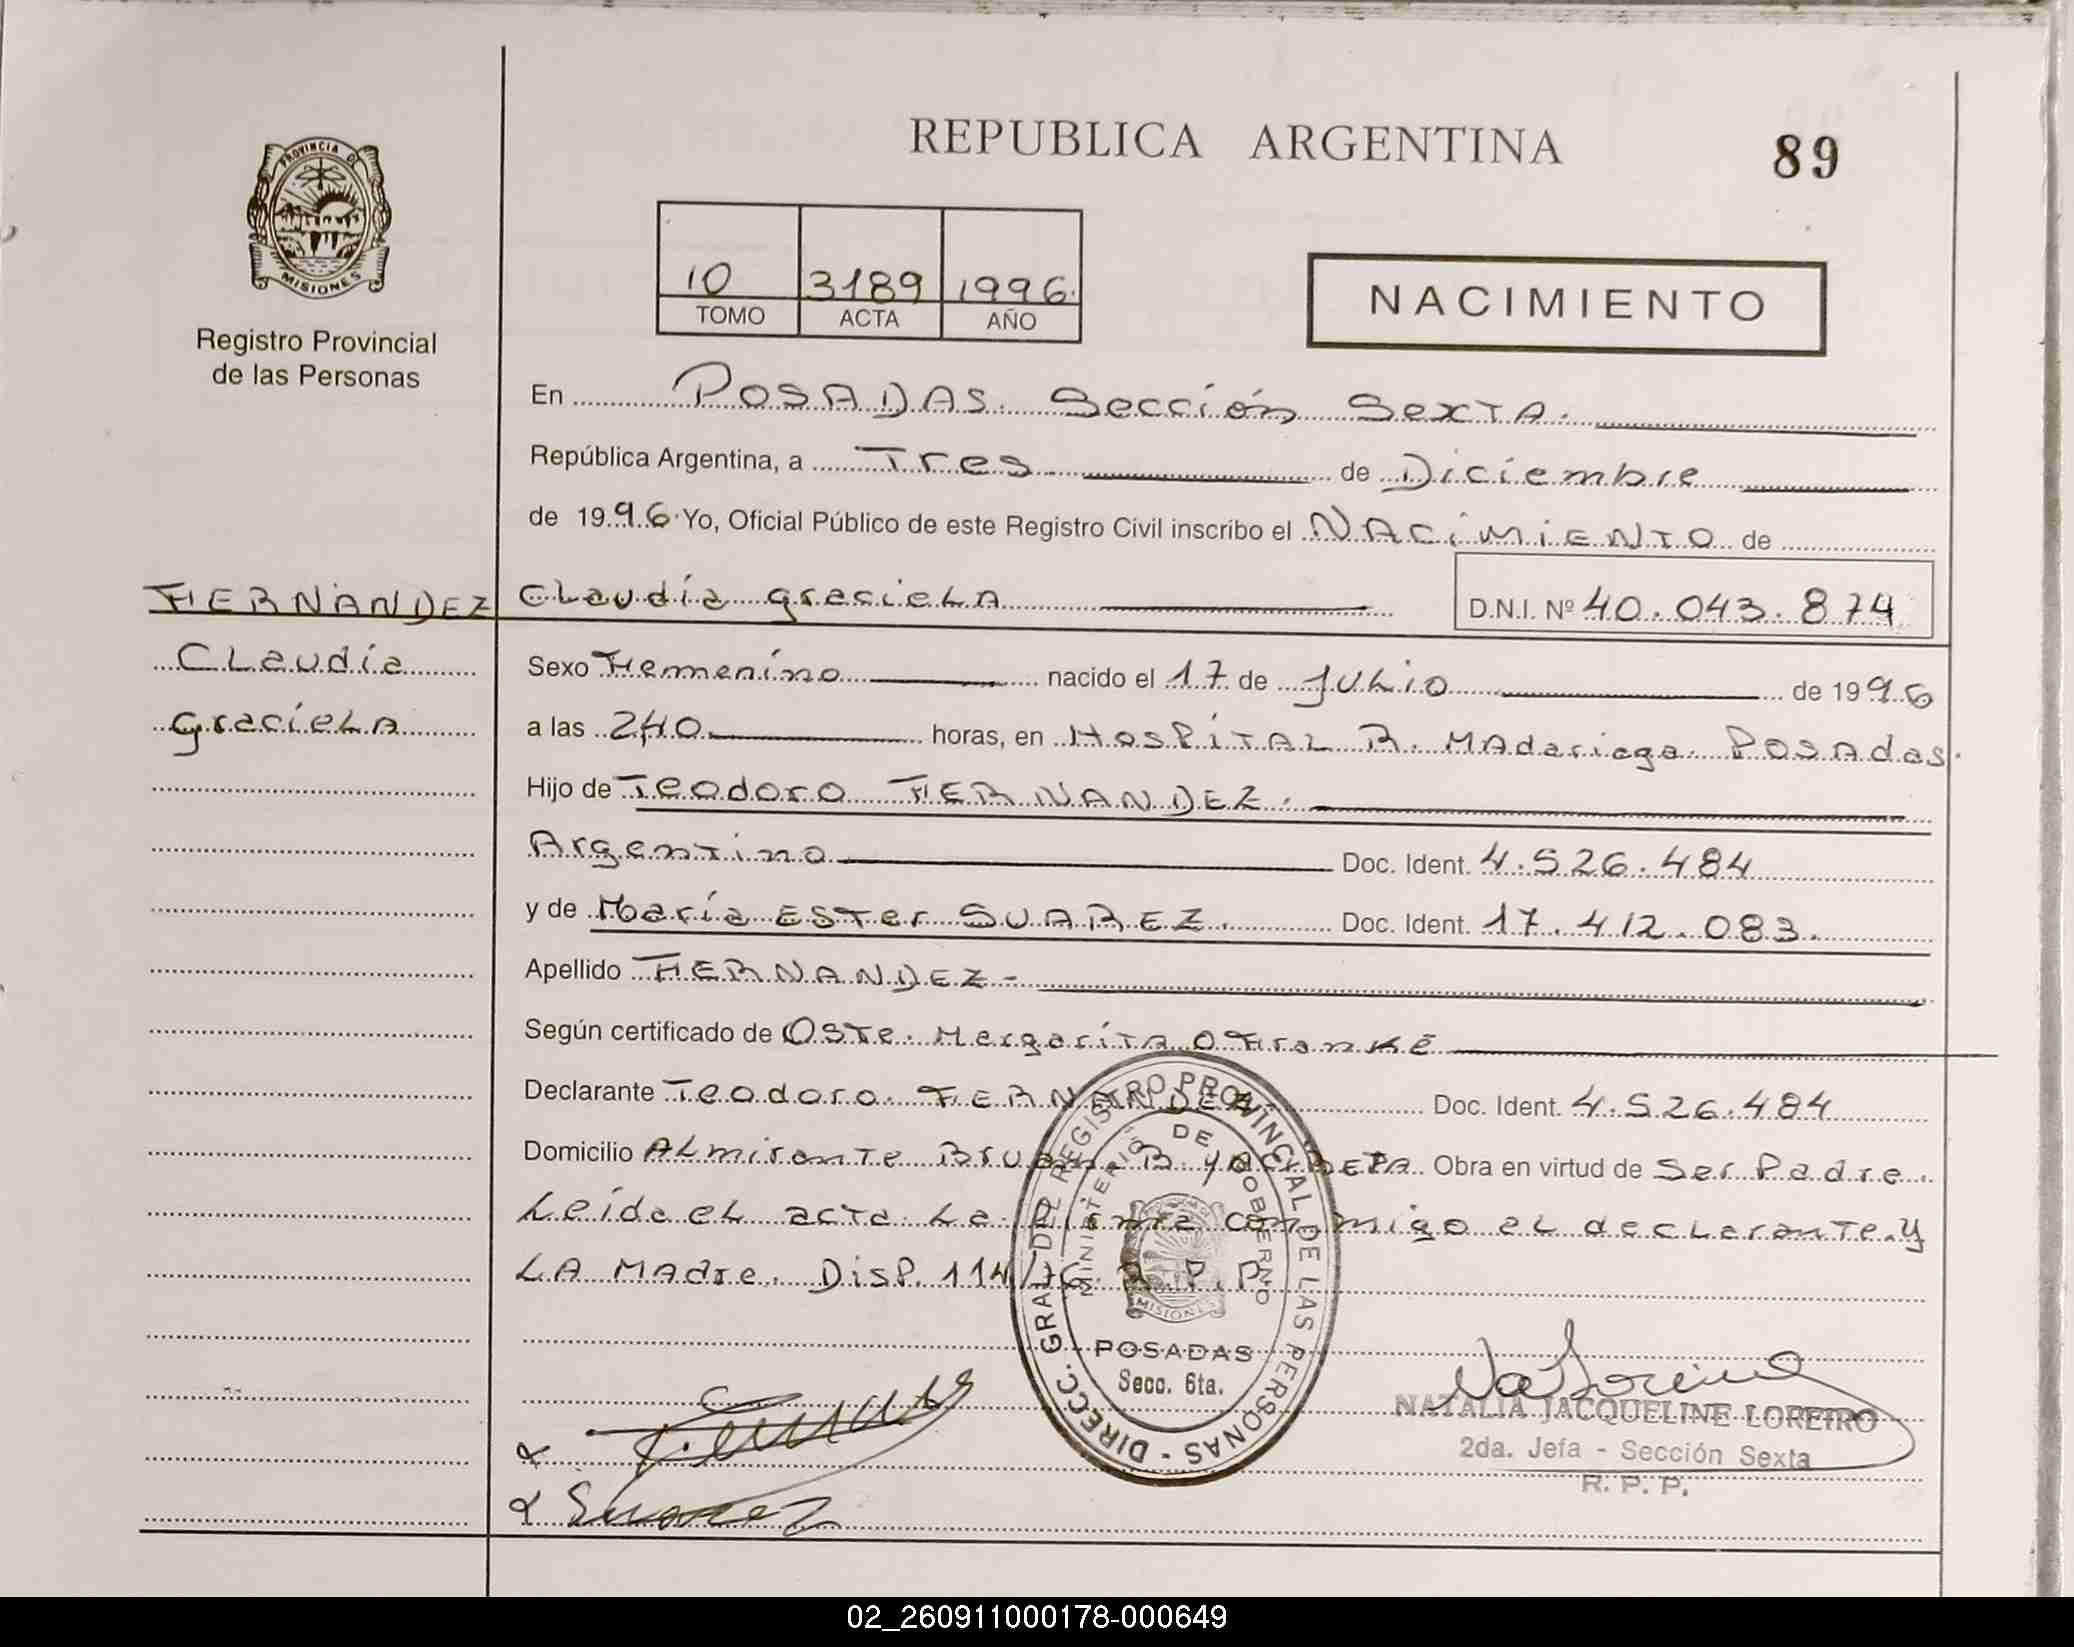 REPUBLICA ARGENTINA
89
PROVINCIA DE
MISIONES
Registro Provincial
de las Personas
10 3189 1996
TOMO ACTA AÑO
NACIMIENTO
En POSADAS. Sección Sexta.
República Argentina, a Tres de Diciembre
de 1996 Yo, Oficial Público de este Registro Civil inscribo el NACIMIENTO de
FIERNANDEZ Claudia graciela D.N.I. Nº 40.043.874
Claudia
graciela
Sexo Femenino nacido el 17 de Julio de 1996
a las 240 horas, en Hospital R. Madariaga Posadas.
Hijo de Teodoro FIERNANDEZ.
Argentino Doc. Ident. 4.526.484
y de María Ester SUAREZ. Doc. Ident. 17.412.083.
Apellido FIERNANDEZ-
Según certificado de Oste. Margarita O Franké
Declarante Teodoro FIERNANDEZ Doc. Ident. 4.526.484
Domicilio Almirante B. Obra en virtud de Ser Padre.
Leída el acta la Firma conmigo el declarante y
LA Madre. Disp. 114/76 R.P.P.
DIRECC. GRAL DEL REGISTRO PROVINCIAL DE LAS PERSONAS -
MINISTERIO DE GOBIERNO
MISIONES
POSADAS
Secc. 6ta.
Suarez
NATALIA JACQUELINE LOREIRO
2da. Jefa - Sección Sexta
R. P. P.
02_260911000178-000649